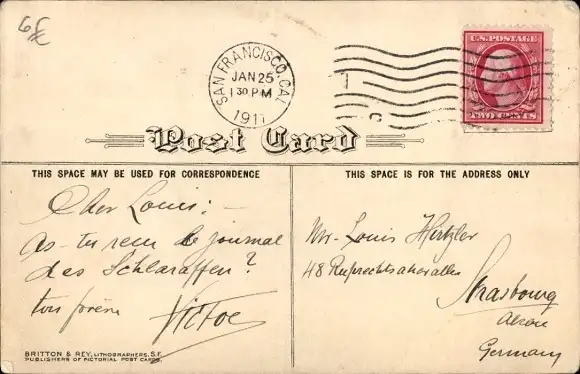 6£
U.S. POSTAGE
TWO CENTS
SAN FRANCISCO, CAL
JAN 25
1 30 PM
1911
Post Card
THIS SPACE MAY BE USED FOR CORRESPONDENCE
THIS SPACE IS FOR THE ADDRESS ONLY
Cher Louis: -
As-tu recu le journal
des Schlaraffen?
ton frère Victor
Mr. Louis Hirtzler
48
Strasbourg
Germany
BRITTON & REY, LITHOGRAPHERS, S.F.
PUBLISHERS OF PICTORIAL POST CARDS.